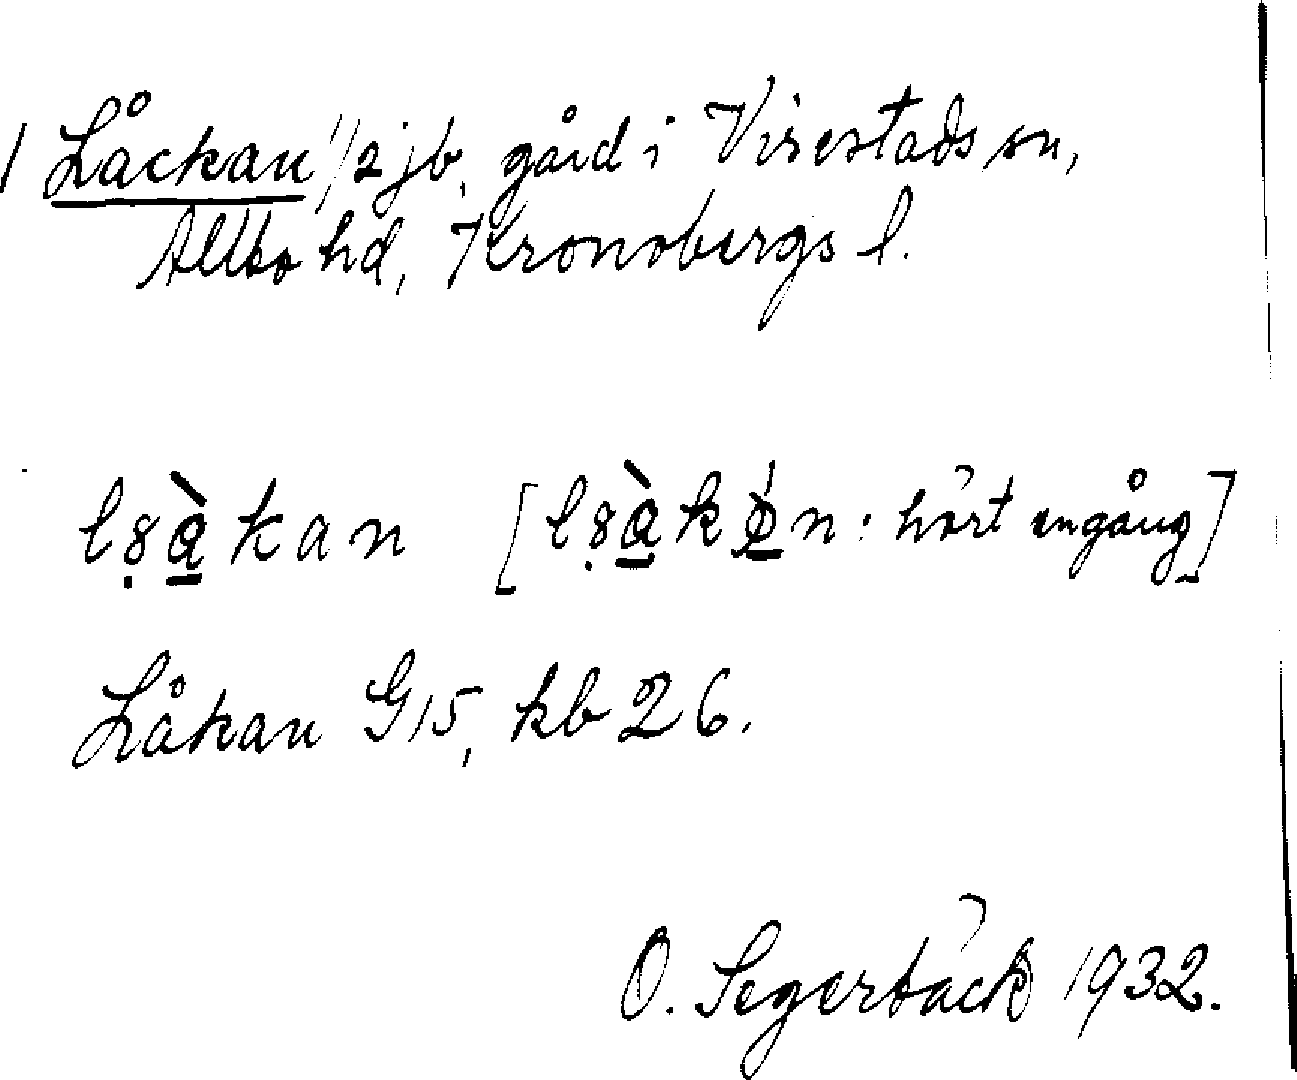 Låckan 1/2 jb, gård i Virestads sn,
Allbo hd, Kronobergs l.
lṣ̀a̱kan [lṣ̀a̱kø̱n: hört engång]
Låkan G15, kb 26.
O. Segerbäck 1932.